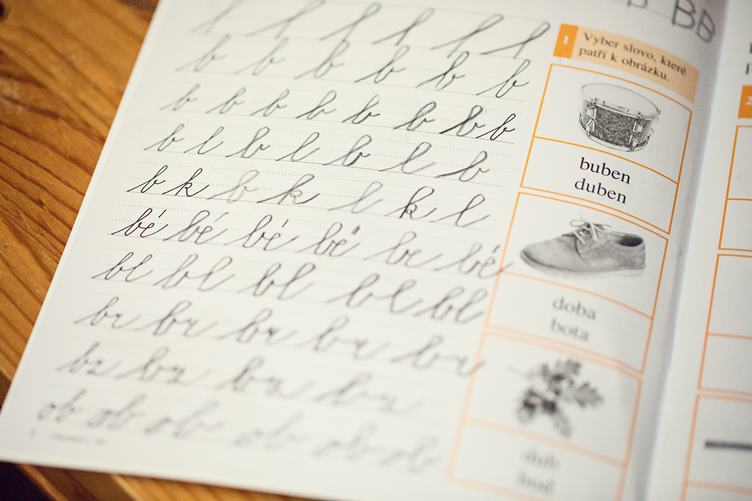 l l l l l l
b b b b b b
b b b b b b b b
b l b l b l b
b k b k l k l
bé bé bé bé be bé
bl bl bl bl bl
br br br br br
bz bz bz bz
ob ob ob ob ob ob
Bb
1 Vyber slovo, které
patří k obrázku.
buben
duben
doba
bota
dub